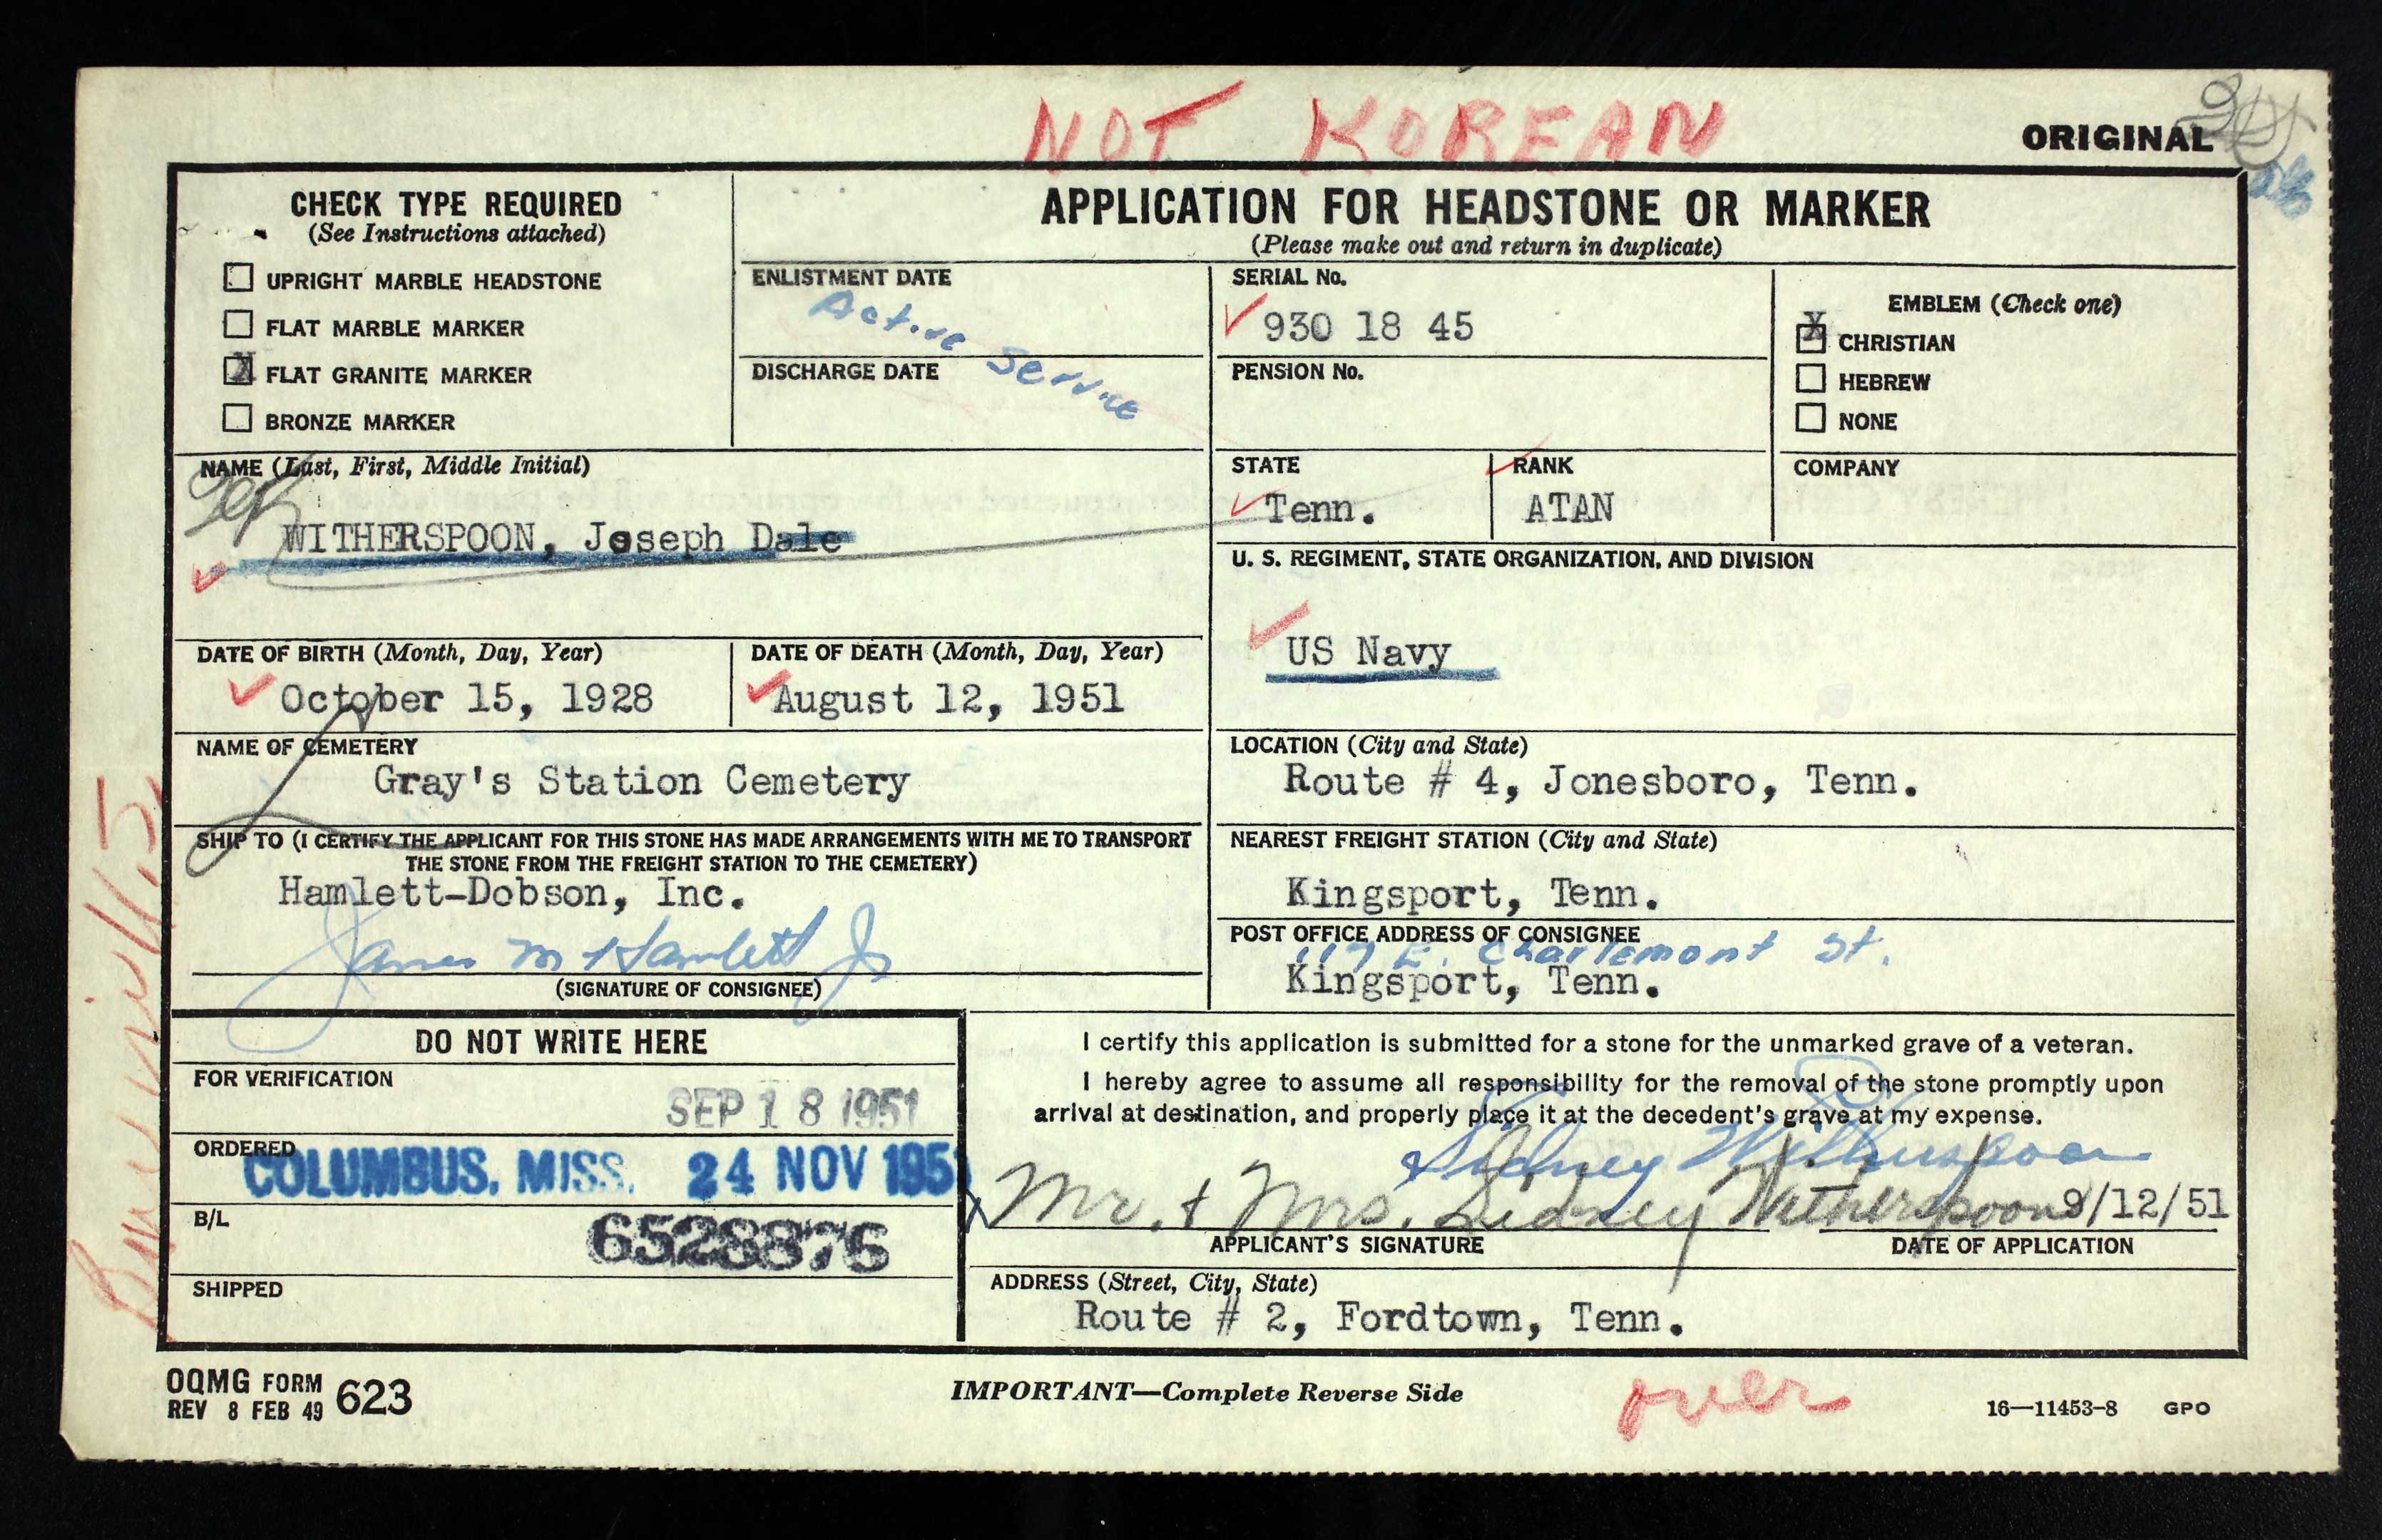 NOT KOREAN
ORIGINAL
CHECK TYPE REQUIRED
(See Instructions attached)
UPRIGHT MARBLE HEADSTONE
FLAT MARBLE MARKER
X FLAT GRANITE MARKER
BRONZE MARKER
APPLICATION FOR HEADSTONE OR MARKER
(Please make out and return in duplicate)
ENLISTMENT DATE
Active Service
DISCHARGE DATE
SERIAL No.
930 18 45
PENSION No.
EMBLEM (Check one)
X CHRISTIAN
HEBREW
NONE
NAME (Last, First, Middle Initial)
WITHERSPOON, Joseph Dale
STATE
Tenn.
RANK
ATAN
COMPANY
U. S. REGIMENT, STATE ORGANIZATION, AND DIVISION
US Navy
DATE OF BIRTH (Month, Day, Year)
October 15, 1928
DATE OF DEATH (Month, Day, Year)
August 12, 1951
NAME OF CEMETERY
Gray's Station Cemetery
LOCATION (City and State)
Route # 4, Jonesboro, Tenn.
SHIP TO (I CERTIFY THE APPLICANT FOR THIS STONE HAS MADE ARRANGEMENTS WITH ME TO TRANSPORT
THE STONE FROM THE FREIGHT STATION TO THE CEMETERY)
Hamlett-Dobson, Inc.
James M Hamlett Jr
(SIGNATURE OF CONSIGNEE)
NEAREST FREIGHT STATION (City and State)
Kingsport, Tenn.
POST OFFICE ADDRESS OF CONSIGNEE
117 E. Charlemont St.
Kingsport, Tenn.
DO NOT WRITE HERE
FOR VERIFICATION
SEP 18 1951
ORDERED
COLUMBUS, MISS. 24 NOV 195
B/L
6528876
SHIPPED
I certify this application is submitted for a stone for the unmarked grave of a veteran.
I hereby agree to assume all responsibility for the removal of the stone promptly upon
arrival at destination, and properly place it at the decedent's grave at my expense.
Sidney Witherspoon
Mr. + Mrs. Sidney Witherspoon 9/12/51
APPLICANT'S SIGNATURE
DATE OF APPLICATION
ADDRESS (Street, City, State)
Route # 2, Fordtown, Tenn.
OQMG FORM 623
REV 8 FEB 49
IMPORTANT—Complete Reverse Side
over
16—11453-8 GPO